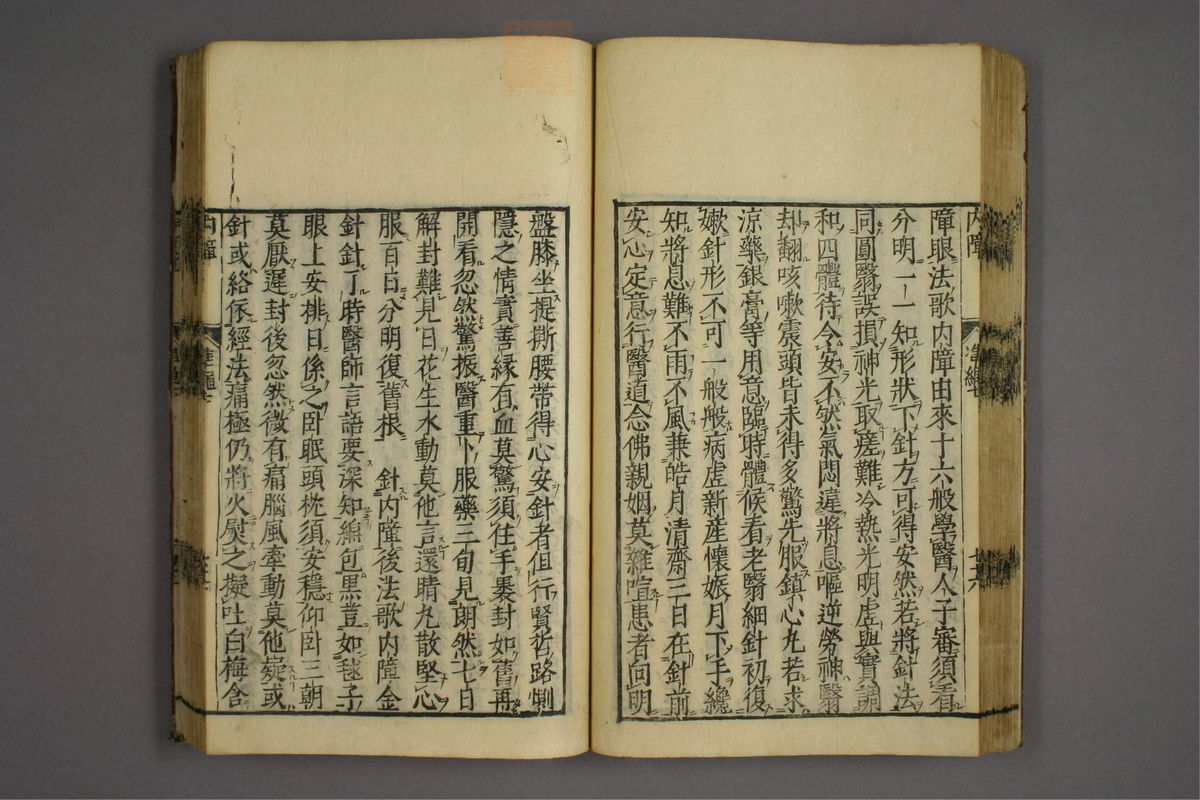 障眼法歌内障由來十六般學醫人子審須看
分明一一知形狀下針方可得安然若將針法
同圓翳誤損神光取瘥難冷熱光明虛與實調
和四體待令安不然氣悶違將息嘔逆勞神翳
却翻咳嗽震頭皆未得多驚先服鎮心丸若求
涼藥銀膏等用意臨時體候看老翳細針初復
嫩針形不可一般般病虛新產懷娠月下手纔
知將息難不雨不風兼皓月清齋三日在針前
安心定意行醫道念佛親姻莫雜喧患者向明
盤膝坐提撕腰帶得心安針者但行賢哲路惻
隱之情實善緣有血莫驚須住手裹封如舊再
開看忽然驚振醫重卜服藥三旬見朗然七日
解封難見日花生水動莫他言還睛丸散堅心
服百日分明復舊根 針内障後法歌内障金
針針了時醫師言語要深知綿包黑荳如毬子
眼上安排日係之卧眠頭枕須安穩仰卧三朝
莫厭遲封後忽然微有痛腦風牽動莫他疑或
針或絡依經法痛極仍將火熨之擬吐白梅含
内障